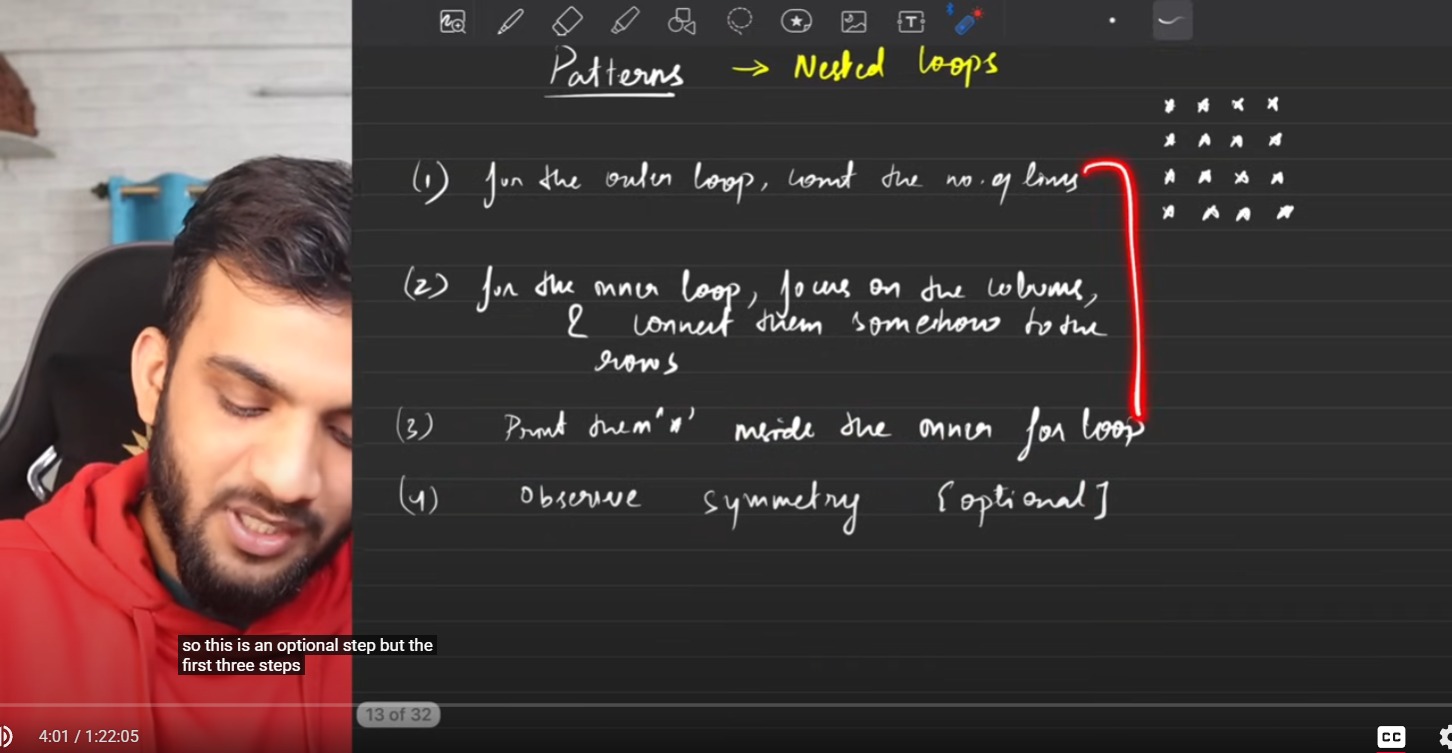 Patterns → Nested loops
(1) for the outer loop, count the no. of lines
(2) for the inner loop, focus on the columns,
& connect them somehow to the
rows
(3) Print them '*' inside the inner for loop
(4) Observe symmetry [optional]
* * * *
* * * *
* * * *
* * * *
so this is an optional step but the
first three steps
13 of 32
4:01 / 1:22:05
CC